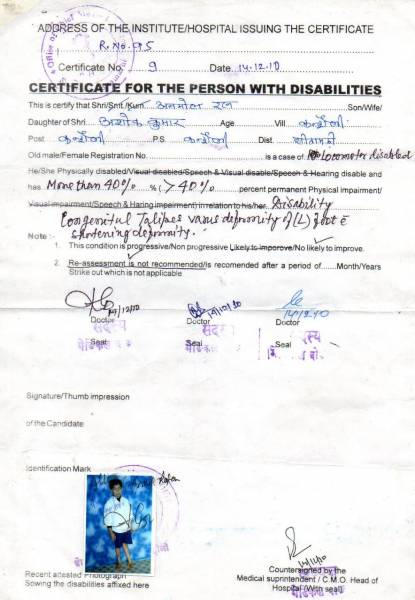 ADDRESS OF THE INSTITUTE/HOSPITAL ISSUING THE CERTIFICATE
R.No. 95
Certificate No. 9 Date 14.12.10
CERTIFICATE FOR THE PERSON WITH DISABILITIES
This is certify that Shri/Smt./Kum अनमोल रत्न Son/Wife/
Daughter of Shri अशोक कुमार Age Vill
Post P.S. Dist.
Old male/Female Registration No. is a case of Locomotor disabled
He/She Physically disabled/Visual disabled/Speech & Visual disable/Speech & Hearing disable and
has More than 40% % (>40% percent permanent Physical impairment/
Visual impairment/Speech & Haring impairment) in relation to his/her Disability
Congenital Talipes varus deformity of (L) foot c̄
shortening deformity.
Note :-
1. This condition is progressive/Non progressive Likely to imporove/No likely to improve.
2. Re-assessment is not recommended/is recomended after a period of......Month/Years
Strike out which is not applicable
14/12/10
Doctor Doctor Doctor
सदस्य सदस्य
Seal Seal Seal
Signature/Thumb impression
of the Candidate
Identification Mark
Recent attested Photograph
Sowing the disabilities affixed here
Countersigned by the
Medical suprintendent / C.M.O. Head of
Hospital (With seal)